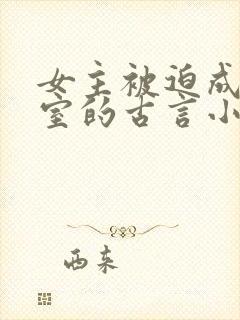 女主被迫成
室的古言小
西来